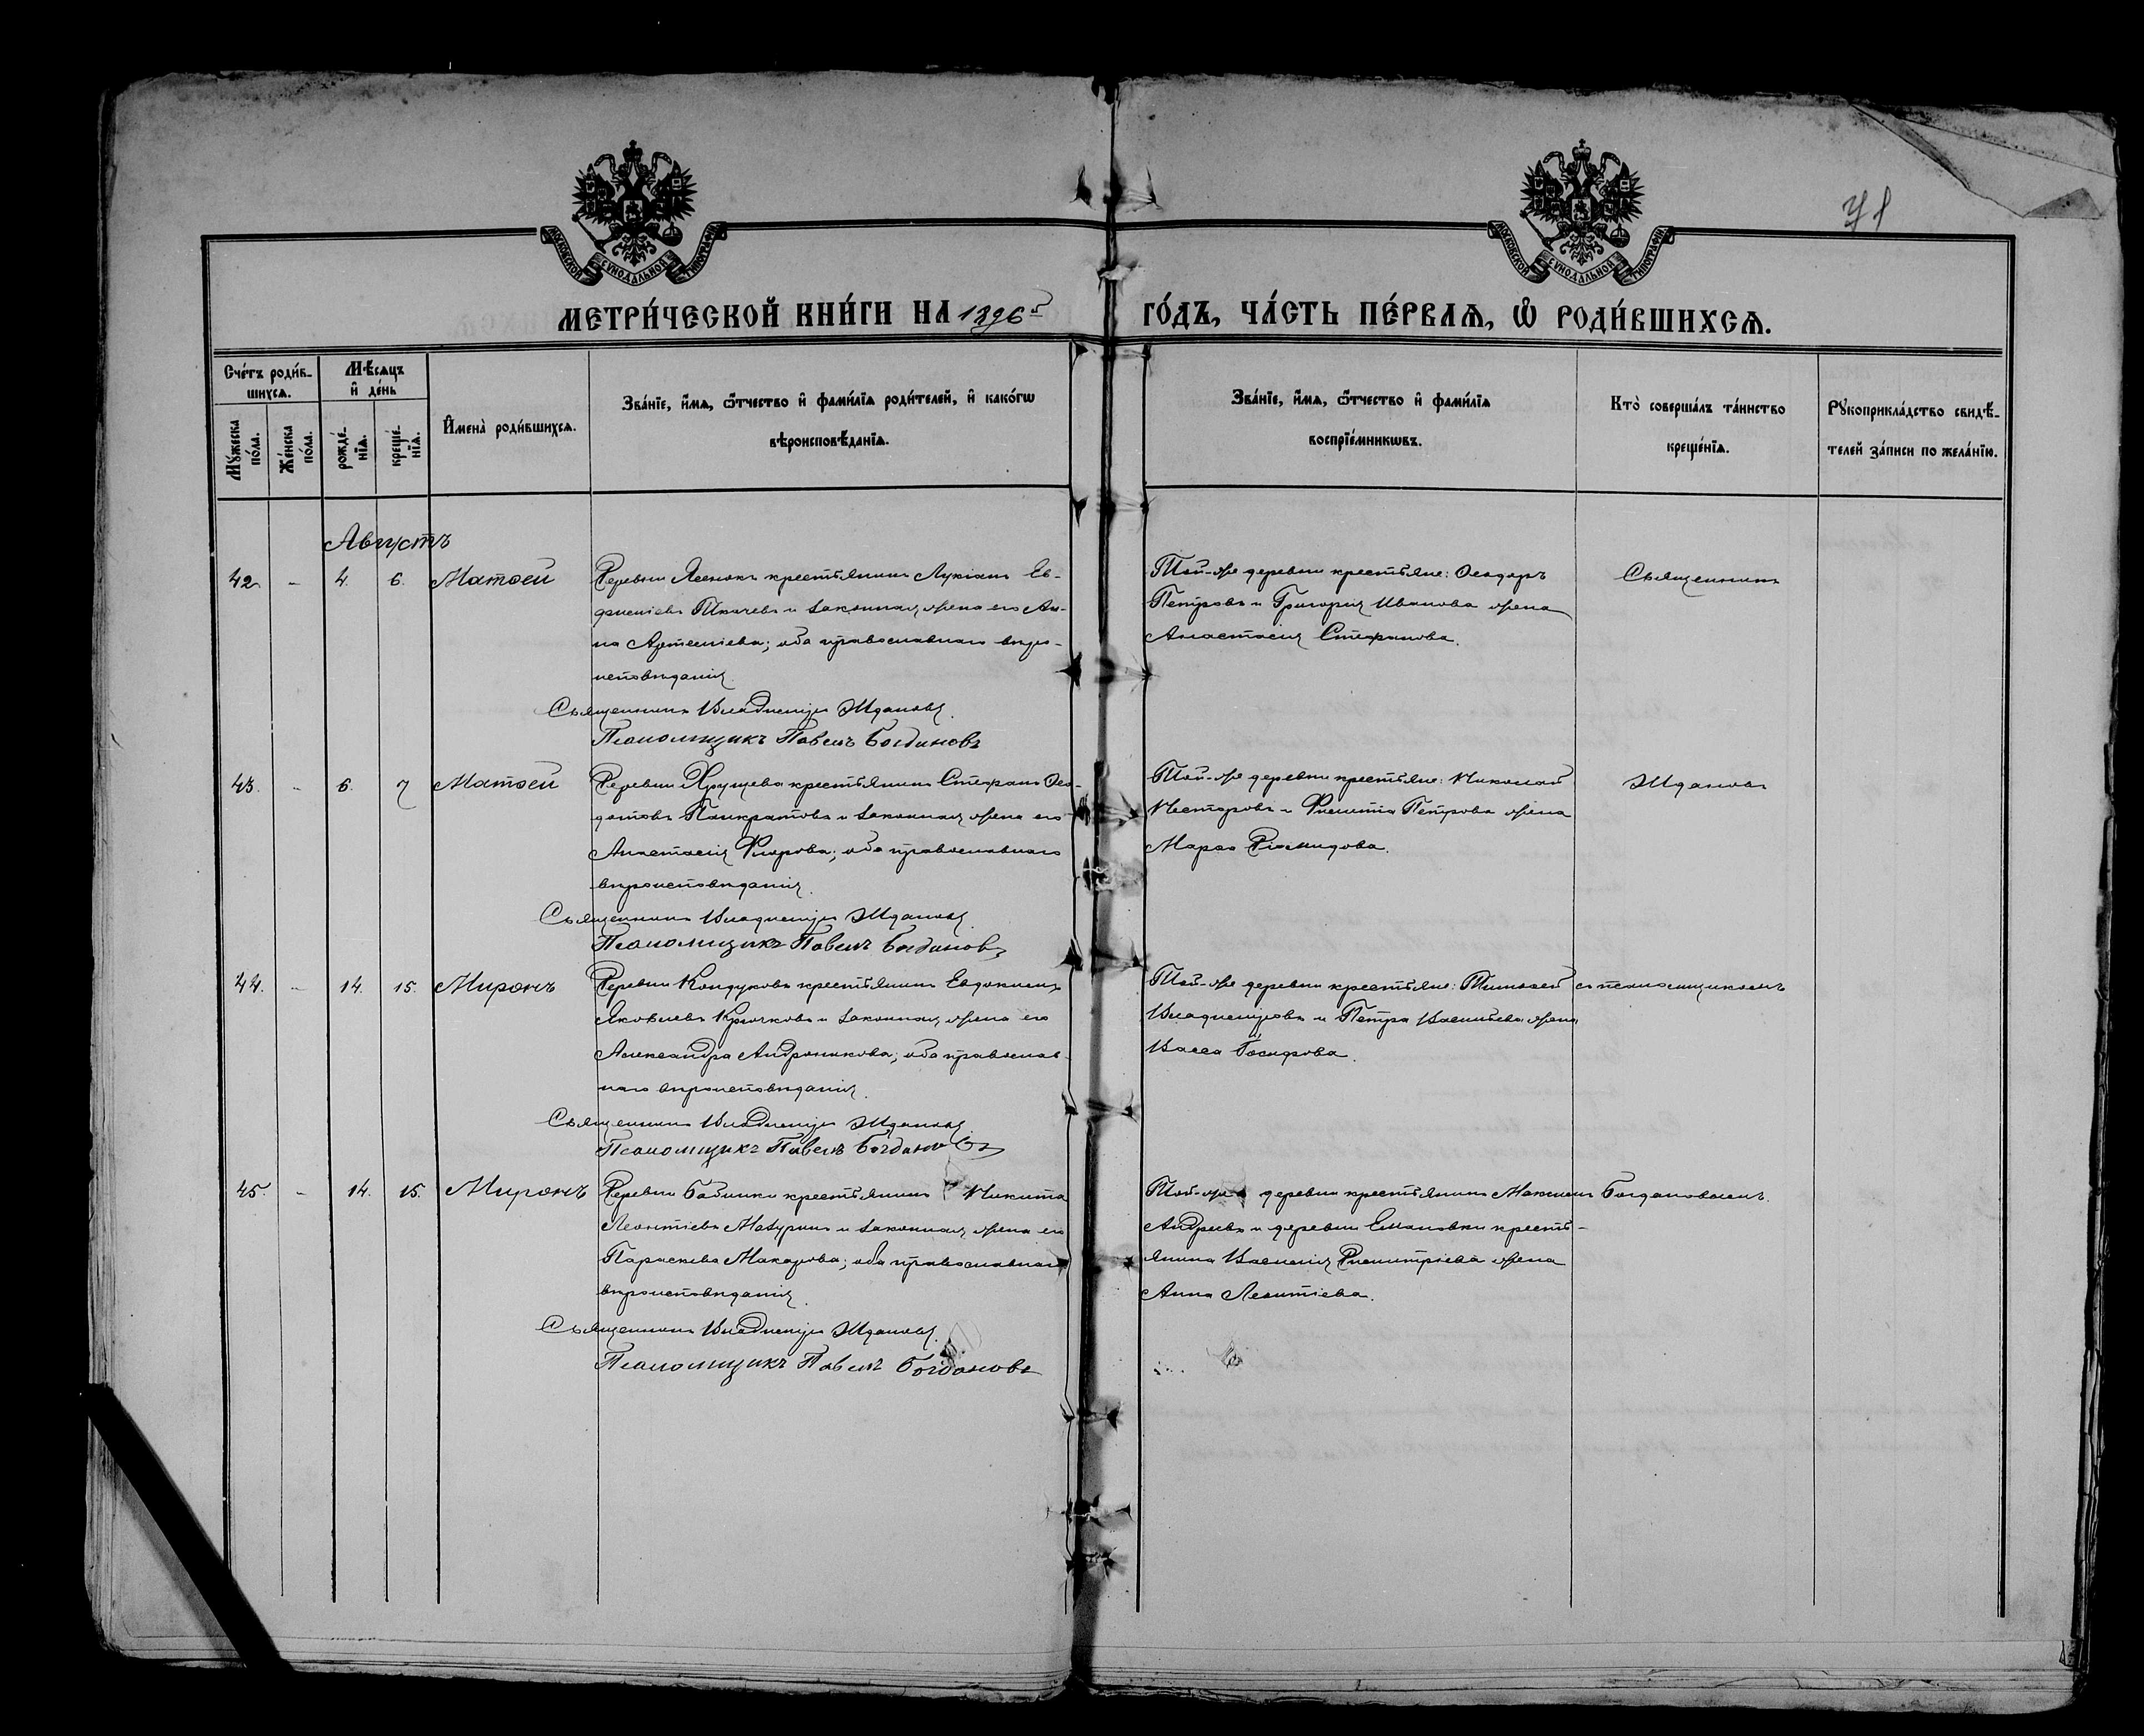 71
МОСКОВСКОЙ СУНОДАЛЬНОЙ ТИПОГРАФІИ
МОСКОВСКОЙ СУНОДАЛЬНОЙ ТИПОГРАФІИ
МЕТРИ́ЧЕСКОЙ КНИ́ГИ НА 1896й ГО́ДЪ, ЧА́СТЬ ПЕ́РВАѦ, Ѡ҆ РОДИ́ВШИХСѦ.
Сче́тъ роди́в-
шихсѧ.
Мꙋ́жеска по́ла.
Же́нска по́ла.
Мѣ́сѧцъ
и҆ де́нь
рожде́-нїѧ.
креще́-нїѧ.
И҆мена̀ роди́вшихсѧ.
Зва́нїе, и҆́мѧ, ѻ҆́тчество и҆ фами́лїѧ роди́телей, и҆ како́гѡ
вѣроисповѣ́данїѧ.
Зва́нїе, и҆́мѧ, ѻ҆́тчество и҆ фами́лїѧ
воспрїе́мникѡвъ.
Кто̀ соверша́лъ та́инство
креще́нїѧ.
Рꙋкоприкла́дство свидѣ́-
телей за́писи по жела́нїю.
Августъ
42. - 4. 6. Матѳей
Деревни Лсенокъ крестьянинъ Лукіанъ Ев-
фиміевъ Ткачевъ и законная жена его Ан-
на Артеміева; оба православнаго вѣро-
исповѣданія.
Священникъ Владиміръ Ждановъ.
Псаломщикъ Павелъ Богдановъ
Той-же деревни крестьяне: Ѳеодоръ
Петровъ и Григорія Иванова жена
Анастасія Стефанова.
Священникъ
43. - 6. 7 Матѳей
Деревни Хрущева крестьянинъ Стефанъ Ѳео-
дотовъ Панкратовъ и законная жена его
Анастасія Флорова; оба православнаго
вѣроисповѣданія.
Священникъ Владиміръ Ждановъ.
Псаломщикъ Павелъ Богдановъ
Той-же деревни крестьяне: Николай
Несторовъ и Филиппа Петрова жена
Марѳа Діомидова.
Ждановъ
44. - 14. 15. Миронъ
Деревни Кондуковъ крестьянинъ Евдокимъ
Яковлевъ Крючковъ и законная жена его
Александра Андроникова; оба православ-
наго вѣроисповѣданія.
Священникъ Владиміръ Ждановъ.
Псаломщикъ Павелъ Богдановъ
Той-же деревни крестьяне: Тимоѳей
Владиміровъ и Петра Васильева жена
Васса Іосифова.
съ псаломщикомъ
45. - 14. 15. Миронъ
Деревни Бабинки крестьянинъ Никита
Леонтіевъ Мазуринъ и законная жена его
Параскева Макарова; оба православнаго
вѣроисповѣданія.
Священникъ Владиміръ Ждановъ.
Псаломщикъ Павелъ Богдановъ
Той-же деревни крестьянинъ Максимъ
Андреевъ и деревни Емановки кресть-
янина Василія Димитріева жена
Анна Леонтіева.
Богдановымъ.